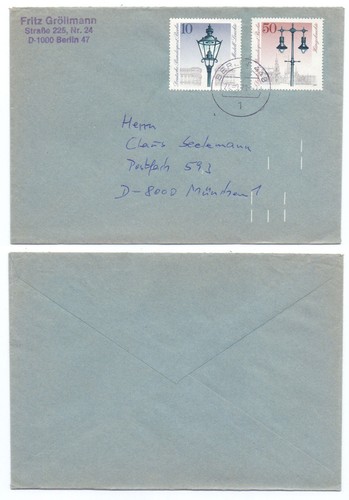 Fritz Gröllmann
Straße 225, Nr. 24
D-1000 Berlin 47
10
50
BERLIN
1
Herrn
Claus Seelemann
Postfach 593
D-8000 München 1